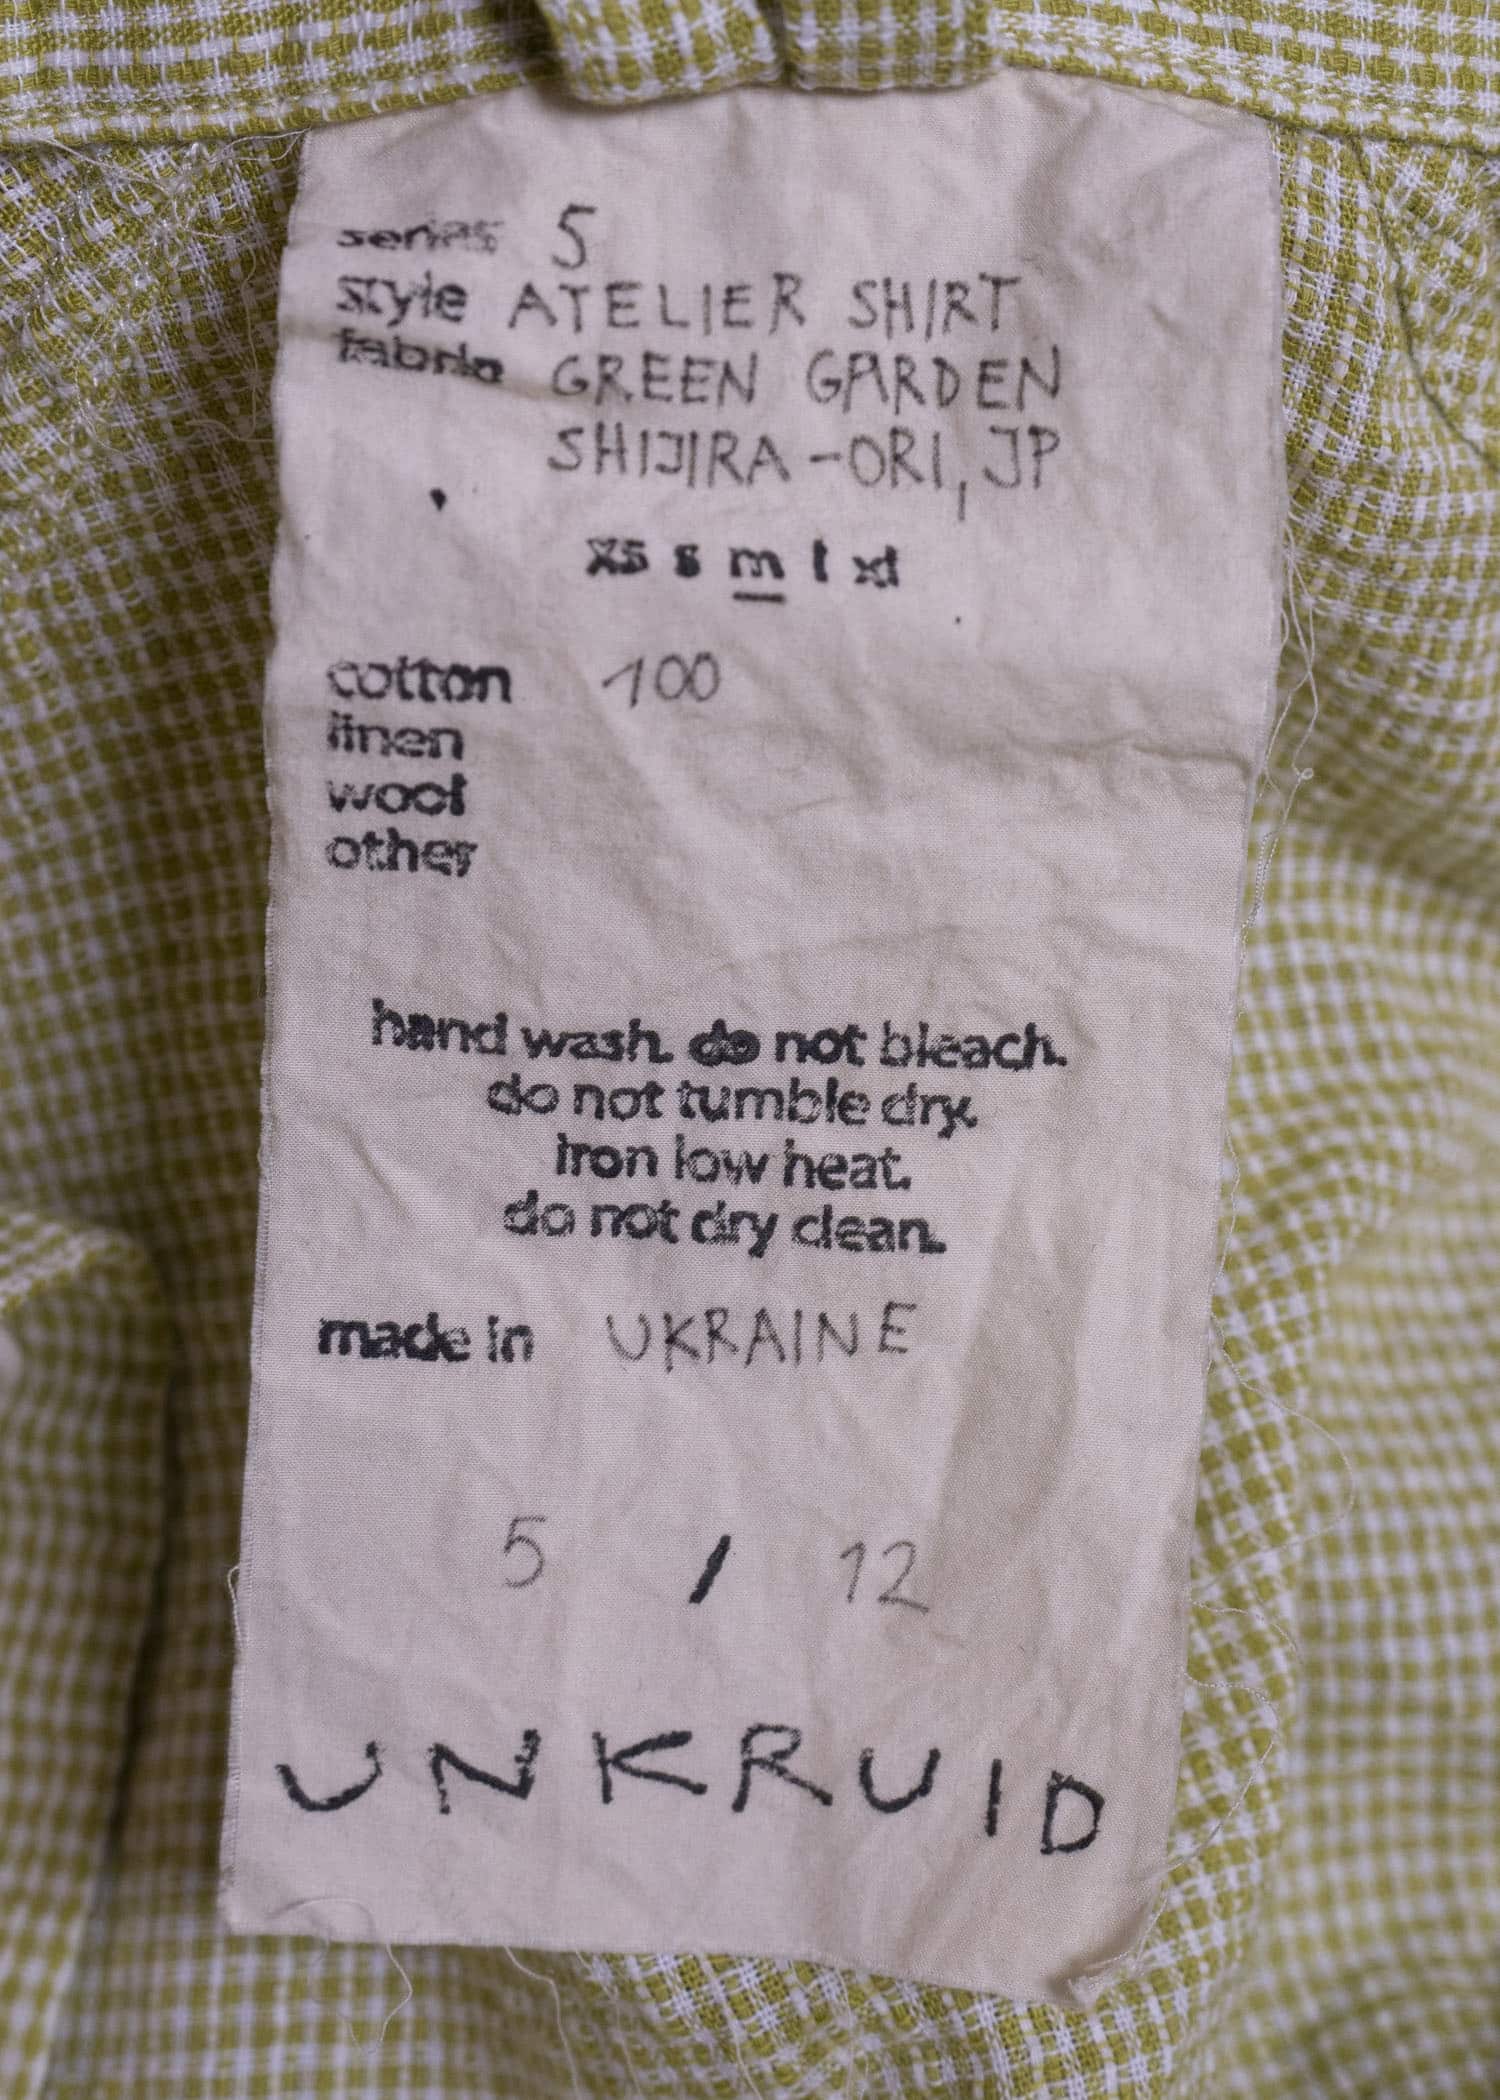 series 5
style ATELIER SHIRT
fabric GREEN GARDEN
SHIJIRA-ORI, JP
xs s m l xl
cotton 100
linen
wool
other
hand wash. do not bleach.
do not tumble dry.
iron low heat.
do not dry clean.
made in UKRAINE
5 / 12
UNKRUID